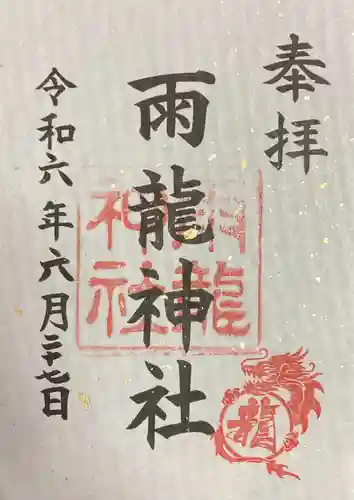 奉拝
雨龍神社
令和六年六月二十七日
雨龍
神社
龍